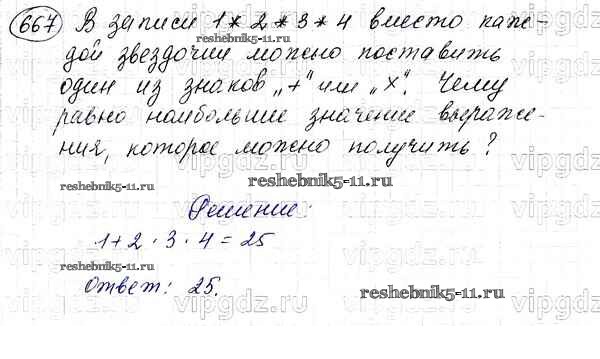 667 В записи 1 * 2 * 3 * 4 вместо каж-
дой звездочки можно поставить
один из знаков „+" или „×". Чему
равно наибольшие значение выраже-
ния, которое можно получить?
vipgdz.ru
reshebnik5-11.ru
reshebnik5-11.ru
Решение:
1+2·3·4=25
reshebnik5-11.ru
Ответ: 25.
reshebnik5-11.ru
vipgdz.ru